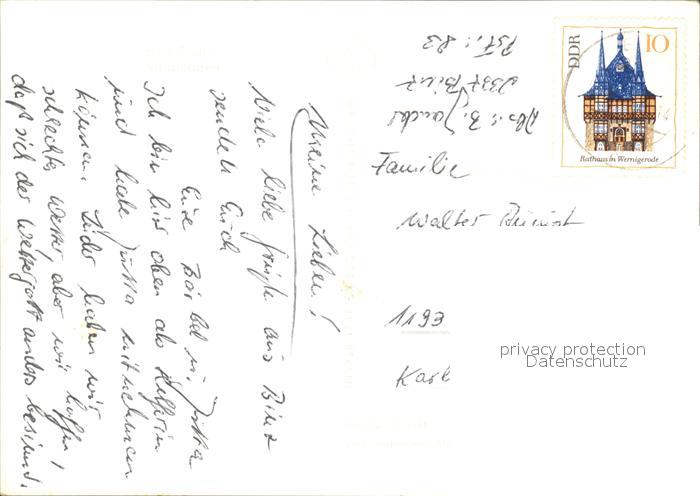 Meine Lieben!
Viele liebe Grüße aus Binz
sendet Euch
Eure Bärbel u. Jutta
Ich bin hier oben als Helferin
und habe Jutta mitnehmen
können. Leider haben wir
schlechtes Wetter, aber wir hoffen,
daß sich der Wettergott anders besinnt.
Abs.: B.
2337 Binz
PSF.: 83
DDR
10
Rathaus in Wernigerode
Familie
Walter
1193
privacy protection
Datenschutz